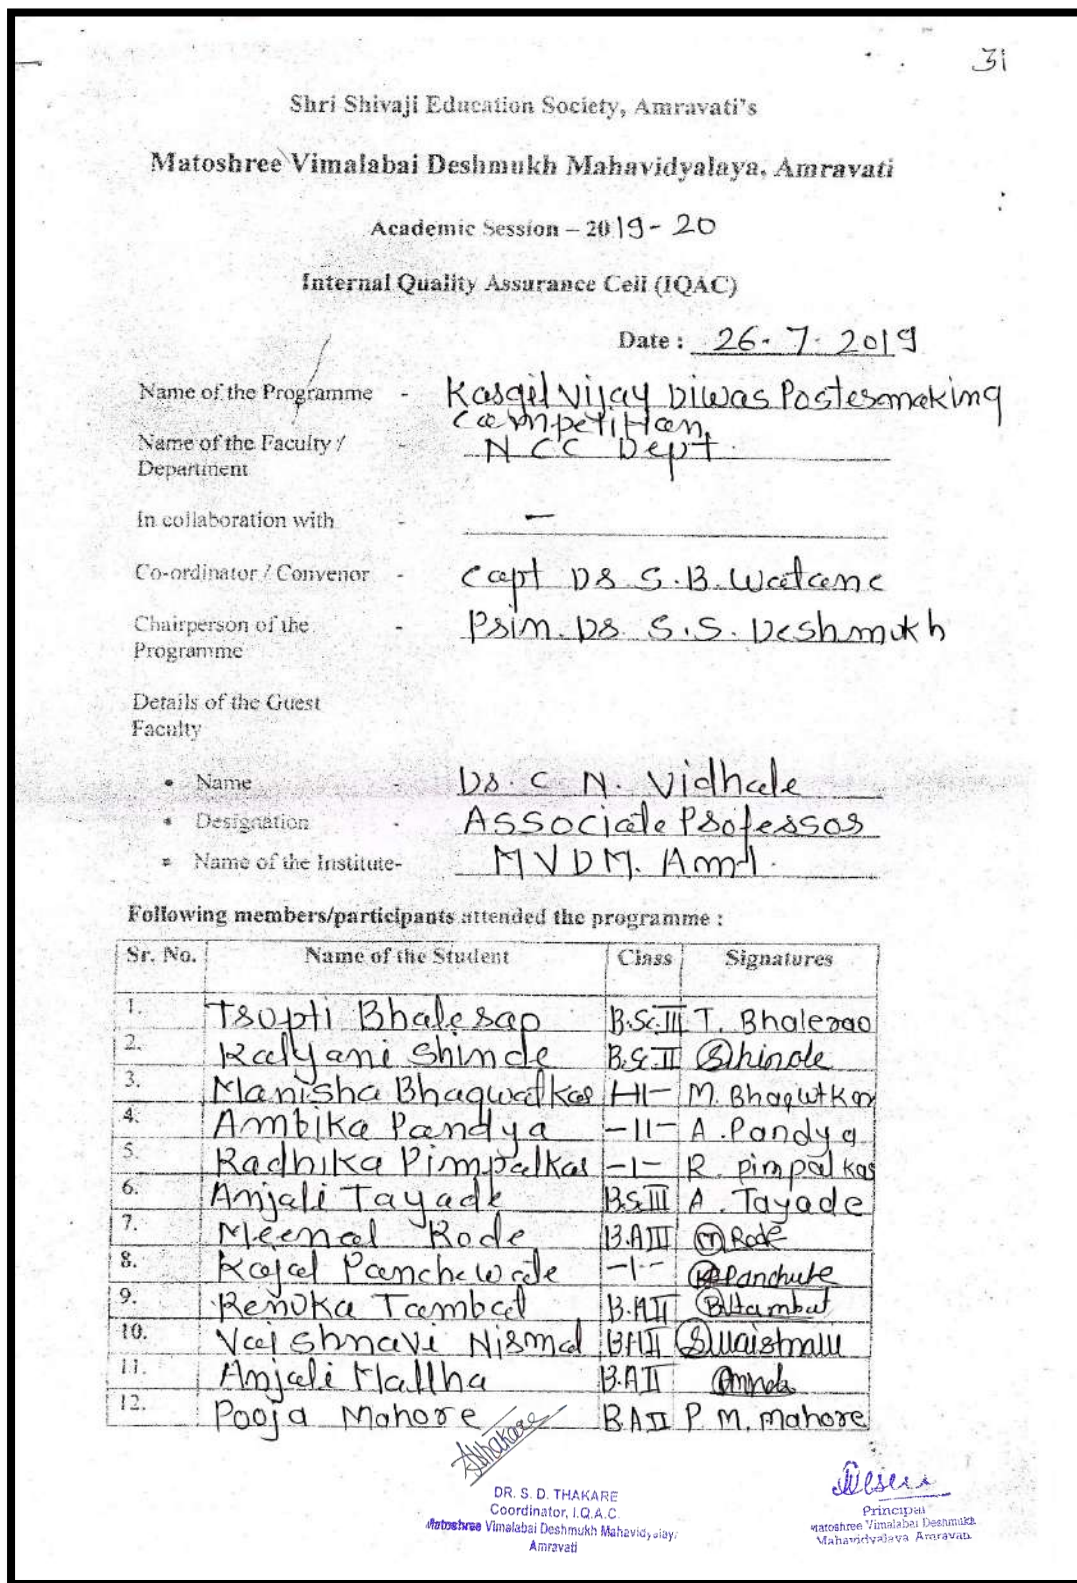 31
Shri Shivaji Education Society, Amravati's
Matoshree Vimalabai Deshmukh Mahavidyalaya, Amravati
Academic Session – 2019-20
Internal Quality Assurance Cell (IQAC)
Date : 26-7-2019
Name of the Programme - Kargil Vijay Diwas Postermaking
Competition,
Name of the Faculty / - NCC Dept.
Department
In collaboration with - —
Co-ordinator / Convenor - Capt Dr S.B. Watane
Chairperson of the - Prin. Dr S.S. Deshmukh
Programme
Details of the Guest
Faculty
• Name - Dr. C N. Vidhale
• Designation - Associate Professor
• Name of the Institute- MVDM. Amt.
Following members/participants attended the programme :
Sr. No. Name of the Student Class Signatures
1. Trupti Bhalerao B.Sc.III T. Bhalerao
2. Kalyani Shinde B.Sc.II Shinde
3. Manisha Bhagwatkar -II- M. Bhagwtkar
4. Ambika Pandya -II- A. Pandya
5. Radhika Pimpalkar -I- R. pimpalkar
6. Anjali Tayade B.S.III A. Tayade
7. Meenal Rode B.AIII M Rode
8. Kajal Panchewate -I-
9. Renuka Tambat B.AII
10. Vaishnavi Nirmal B.AII
11. Anjali Mallha B.AII
12. Pooja Mahore B.AII P. M. mahore
DR. S. D. THAKARE
Coordinator, I.Q.A.C.
Matoshree Vimalabai Deshmukh Mahavidyalay,
Amravati
Principal
Matoshree Vimalabai Deshmukh
Mahavidyalaya Amravati